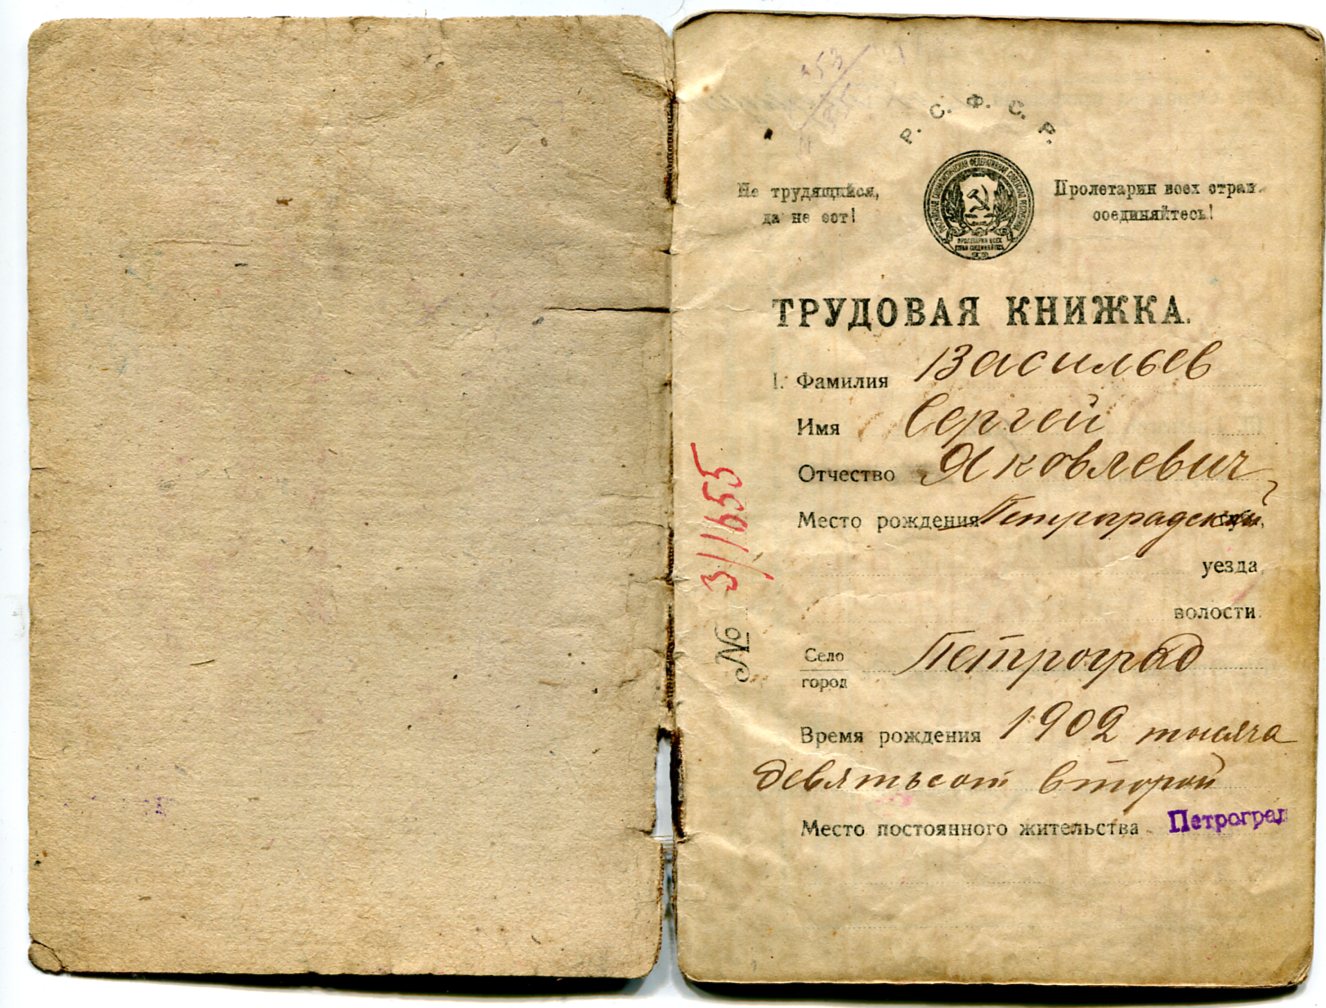 Р. С. Ф. С. Р.
Не трудящийся,
да не ест!
Пролетарии всех стран
соединяйтесь!
ПРОЛЕТАРИИ ВСЕХ
СТРАН СОЕДИНЯЙТЕСЬ
ТРУДОВАЯ КНИЖКА.
1. Фамилия Васильев
Имя Сергей
Отчество Яковлевич
Место рождения Петроградский
уезда,
волости.
Село
город Петроград
Время рождения 1902 тысяча
девятьсот второй
Место постоянного жительства Петроград
№ 311655